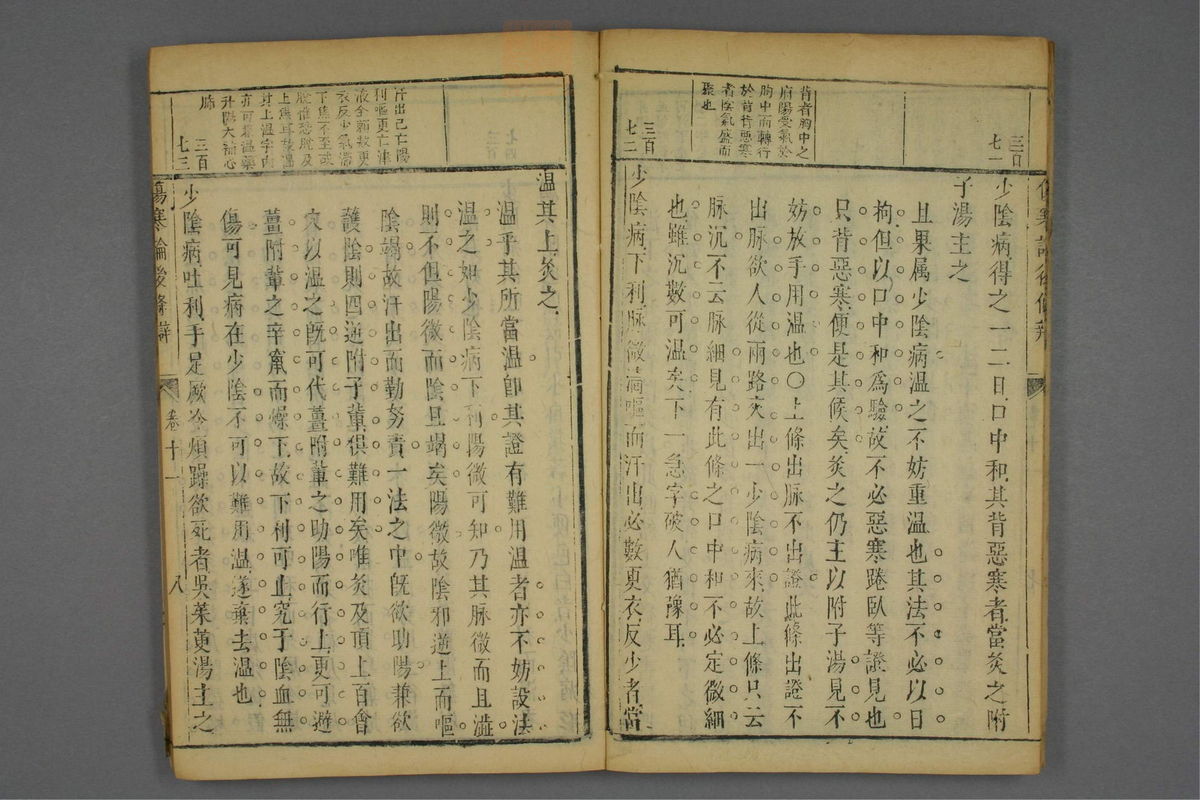 三百
七一
少陰病得之一二日口中和其背惡寒者當灸之附
子湯主之
且果属少陰病温之不妨重温也其法不必以日
拘但以口中和為驗故不必惡寒踡臥等證見也
只背惡寒便是其候矣灸之仍主以附子湯見不
妨放手用温也〇上條出脉不出證此條出證不
出脉欲人從兩路夾出一少陰病來故上條只云
脉沉不云脉細見有此條之口中和不必定微細
也雖沉數可温矣下一急字破人猶豫耳
背者胸中之
府陽受氣於
胸中而轉行
於背背惡寒
者陰氣盛而
聚也
三百
七二
少陰病下利脉微濇嘔而汗出必數更衣反少者當
温其上灸之
温乎其所當温卽其證有難用温者亦不妨設法
温之如少陰病下利陽微可知乃其脉微而且濇
則不但陽微而陰且竭矣陽微故陰邪逆上而嘔
陰竭故汗出而勤努責一法之中旣欲助陽兼欲
護陰則四逆附子輩俱難用矣唯灸及頂上百會
穴以温之旣可代薑附輩之助陽而行上更可避
薑附輩之辛竄而燥下故下利可止究于陰血無
傷可見病在少陰不可以難用温遂棄去温也
汗出已亡陽
利嘔更亡津
液今頻數更
衣反少氣濇
下焦不至
及
上焦耳故溫
其上溫字内
亦可兼溫藥
升陽大補心
肺
三百
七三
少陰病吐利手足厥冷煩躁欲死者吳茱萸湯主之
傷寒論後條辯
卷十一
八